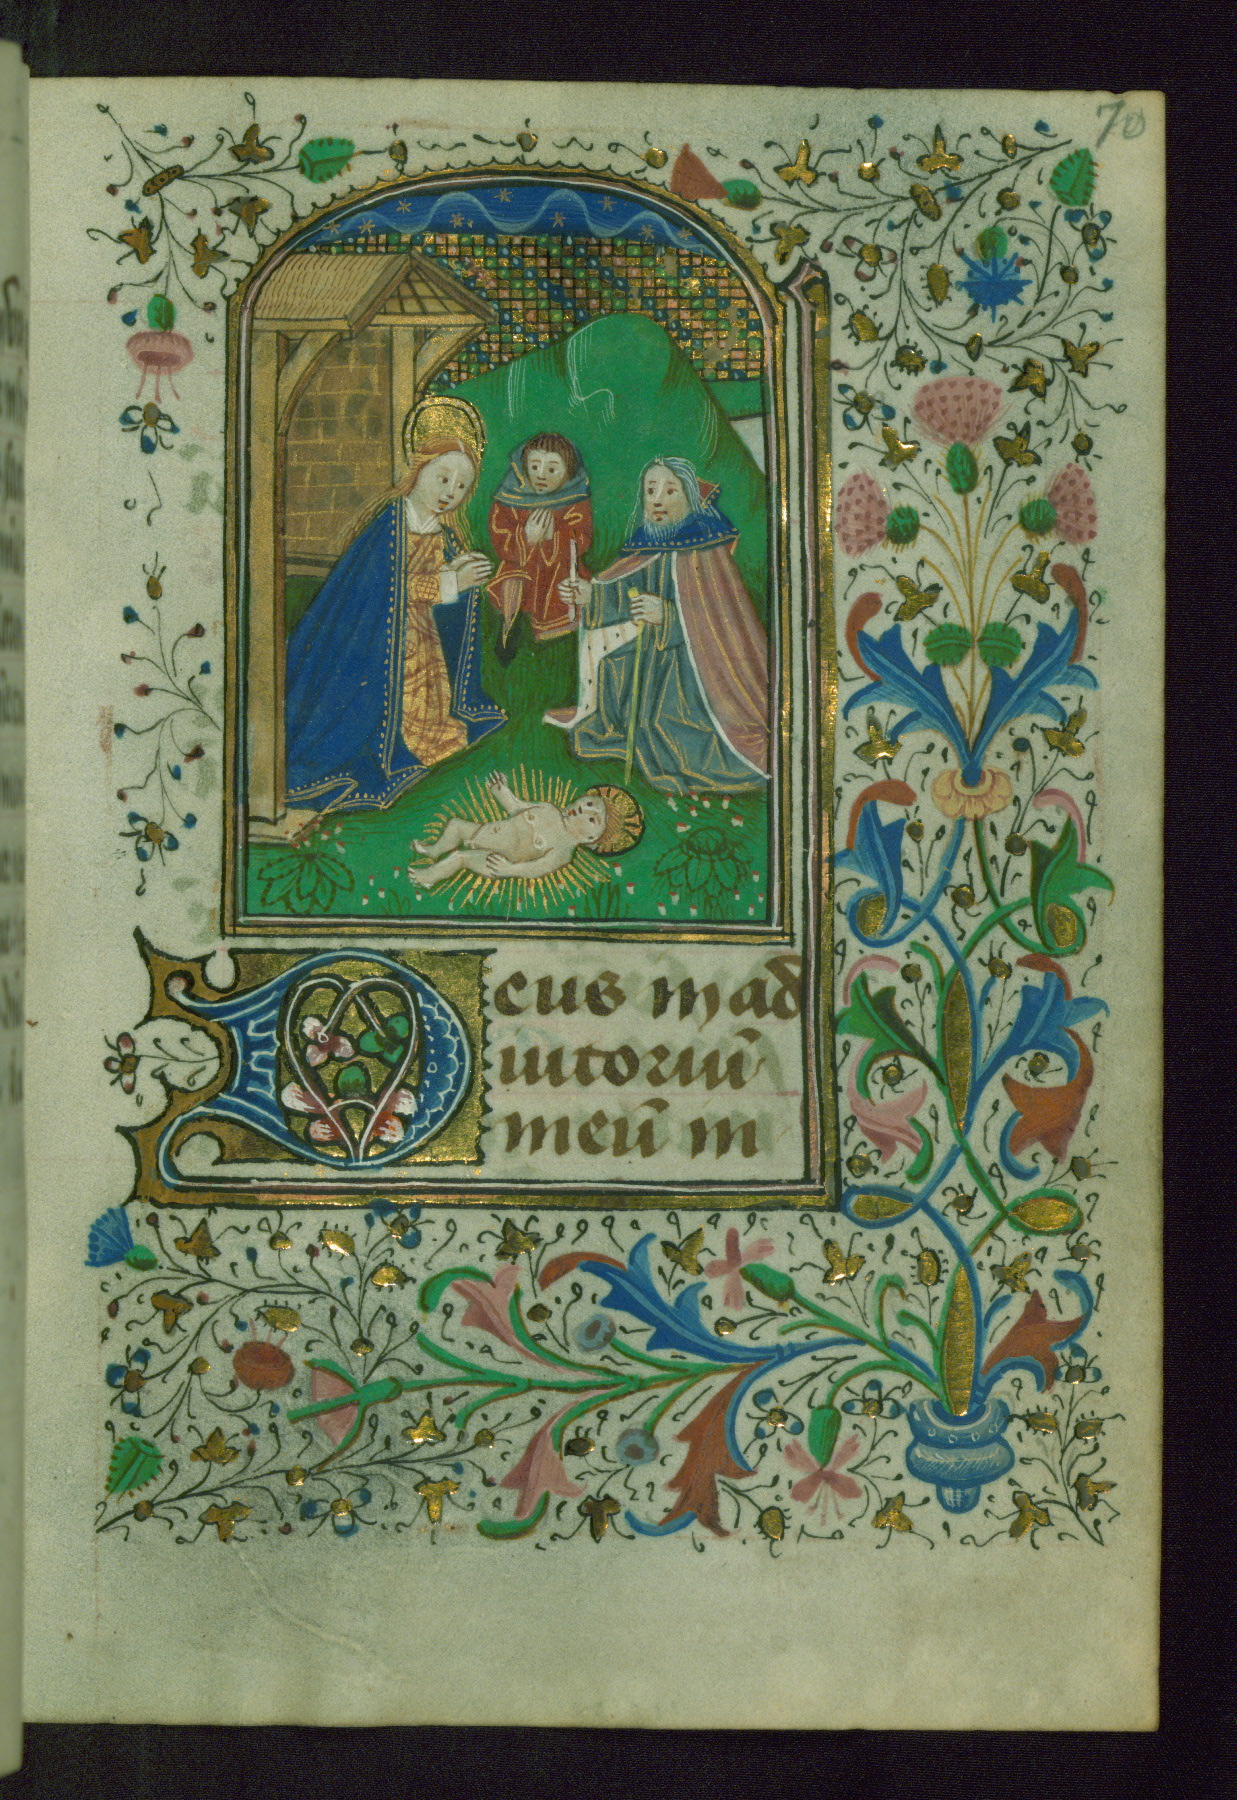 70
Deus in ad
iutoriū
meū in